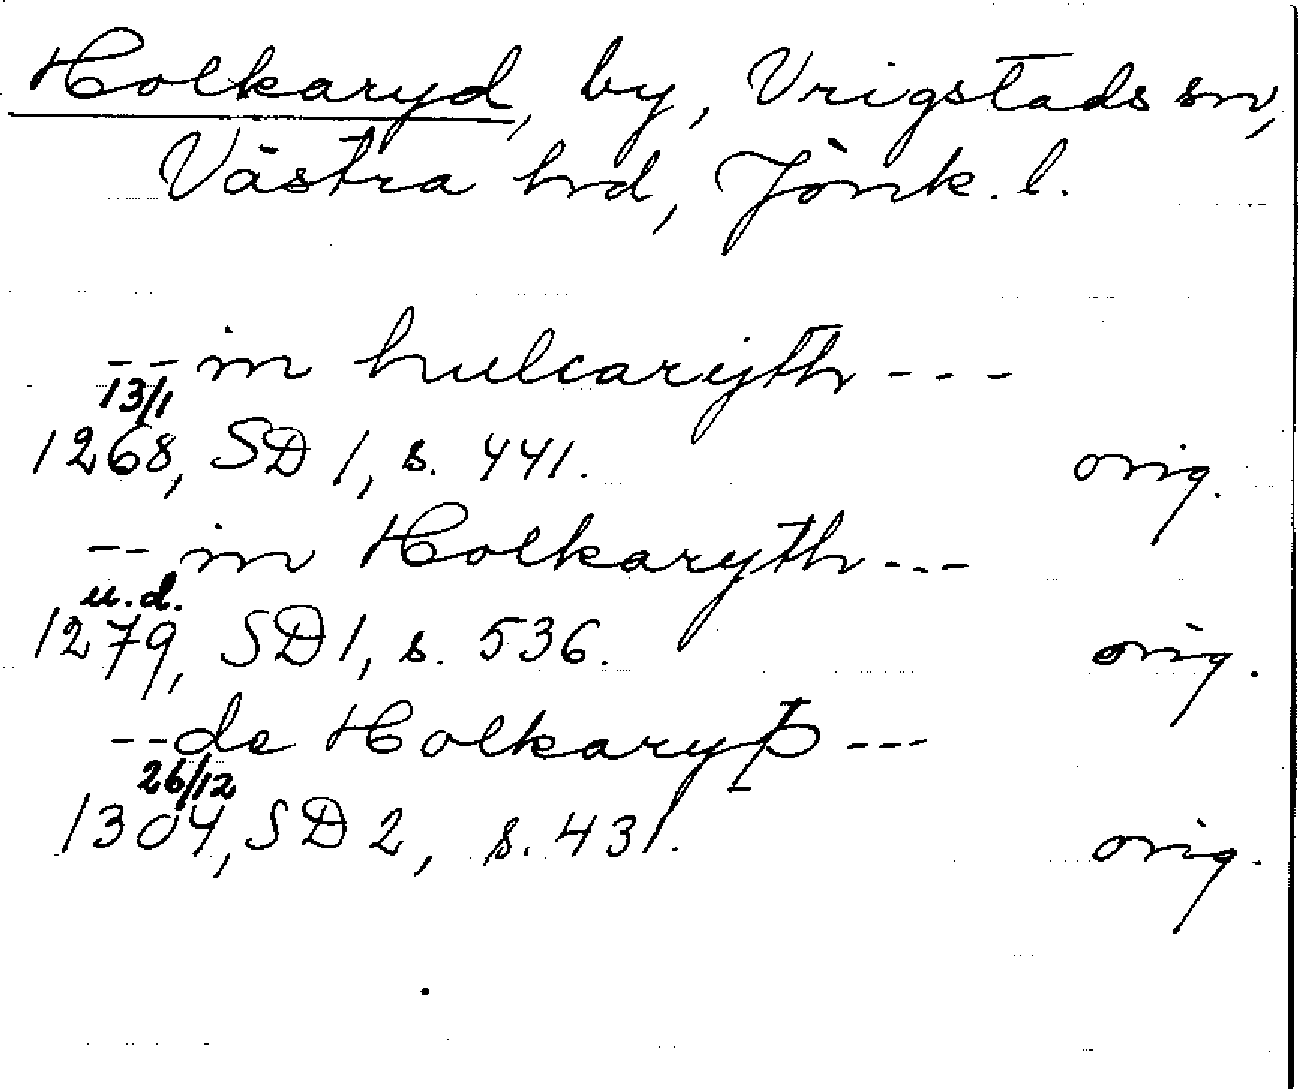 Holkaryd, by, Vrigstads sn,
Västra hd, Jönk. l.
-- in hulcaryth ---
13/1
1268, SD 1, s. 441. orig.
-- in Holkaryth ---
u.d.
1279, SD 1, s. 536. orig.
-- de Holkaryþ ---
26/12
1304, SD 2, s. 431. orig.